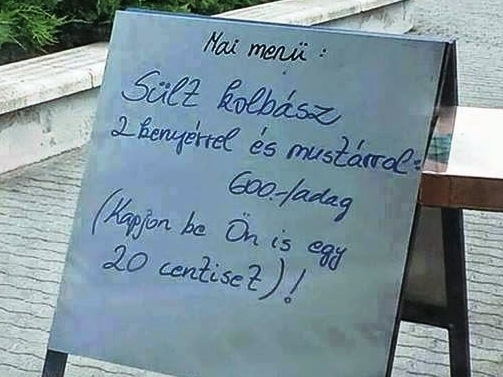 Mai menü :
Sült kolbász
2 kenyérrel és mustárral:
600.-/adag
(Kapjon be Ön is egy
20 centiset)!